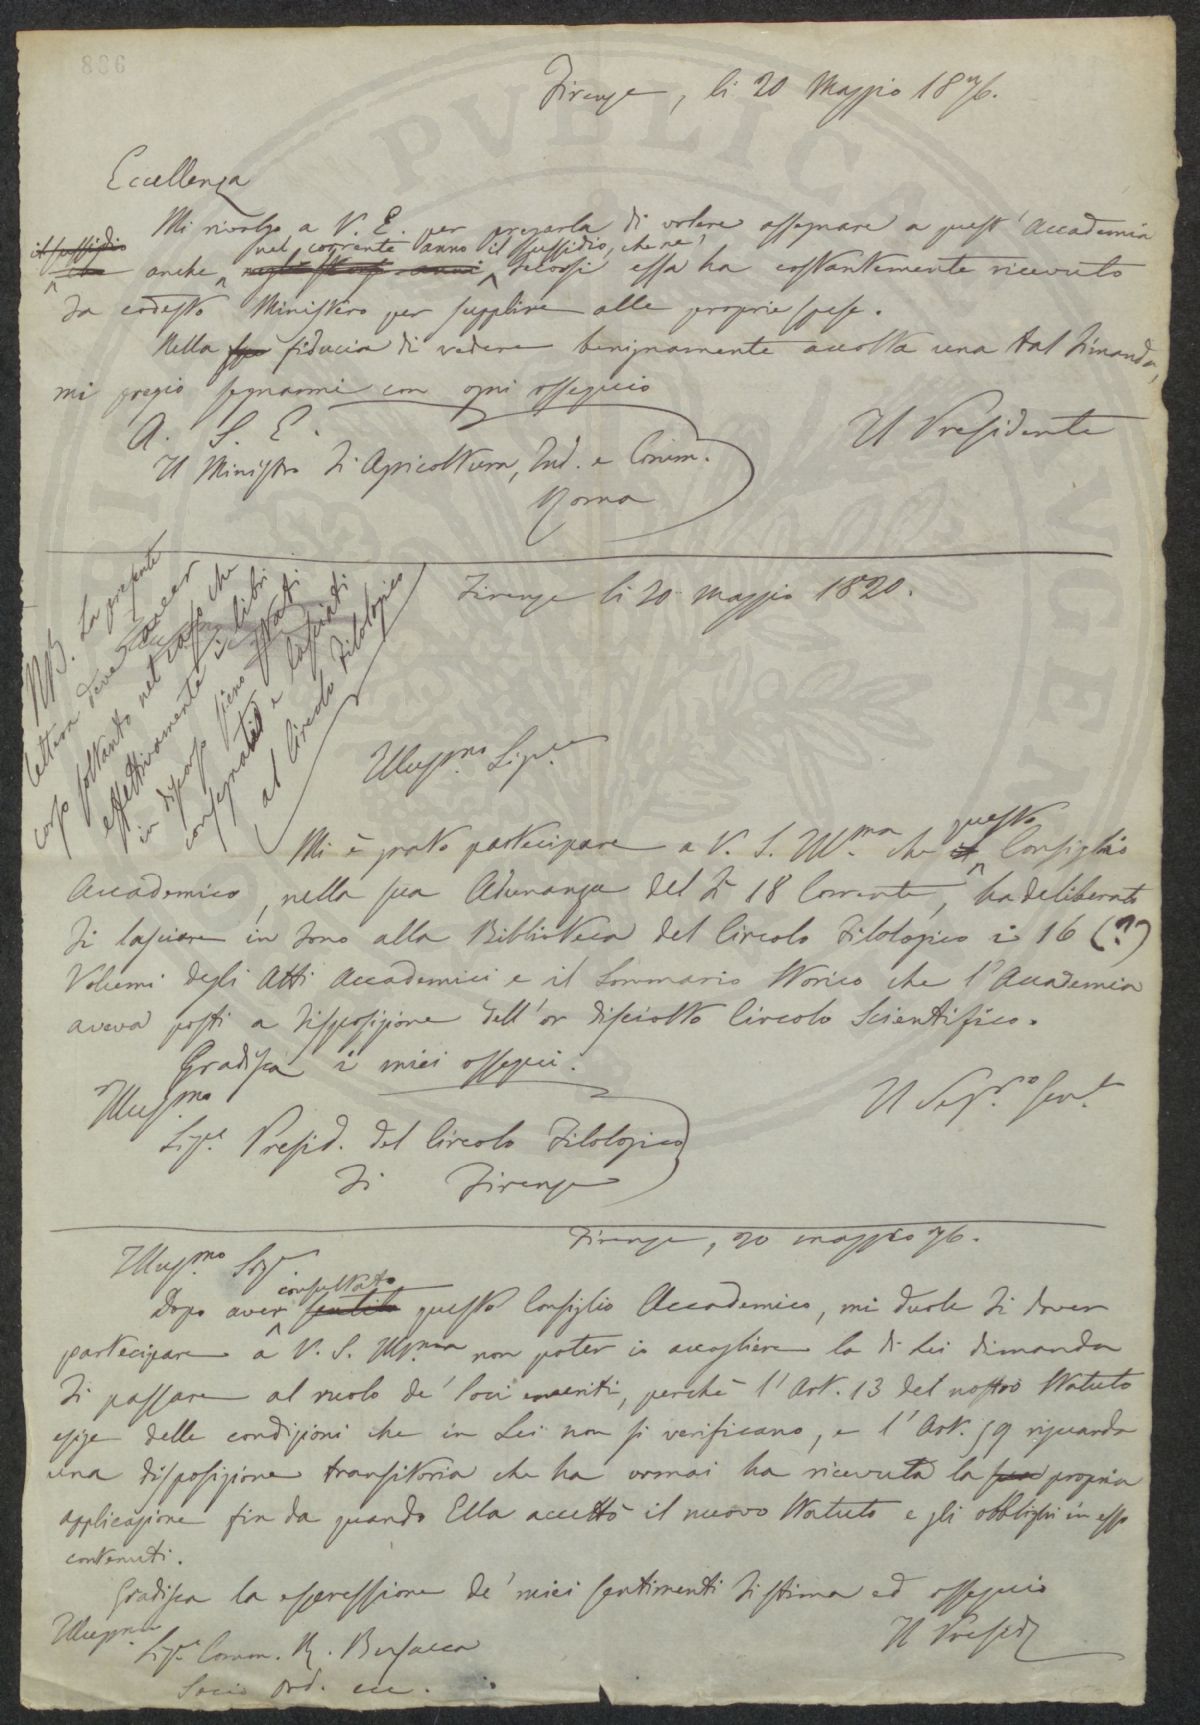 886
Firenze, li 20 Maggio 1876.
Eccellenza
Mi rivolgo a V. E. per pregarla di volere assegnare a quest'Accademia
il sussidio nel corrente anno il sussidio, che ne'
che anche negli scorsi anni decorsi essa ha costantemente ricevuto
da codesto Ministero per supplire alle proprie spese.
Nella fiducia di vedere benignamente accolta una tal dimanda,
mi pregio segnarmi con ogni ossequio
A. S. E. Il Presidente
Il Ministro di Agricoltura, Ind. e Comm.
Roma
Firenze li 20 Maggio 1820.
NB. La presente
lettera deve aver
corso soltanto nel caso che
effettivamente i libri
in discorso sieno stati
consegnati e lasciati
al Circolo Filologico
Illusmo. Sigre.
questo
Mi è grato partecipare a V. S. Illma. che il Consiglio
Accademico, nella sua Adunanza del dì 18 Corrente, ha deliberato
di lasciare in dono alla Biblioteca del Circolo Filologico i 16 (?)
Volumi degli Atti Accademici e il Sommario Storico che l'Accademia
aveva posti a disposizione dell'or disciolto Circolo Scientifico.
Gradisca i miei ossequi.
Illusmo. Il Segrio. Genl.
Sigre. Presid. del Circolo Filologico
di Firenze
Firenze, 20 maggio 76.
Illusmo. Sigre.
consultato
Dopo aver sentito questo Consiglio Accademico, mi duole di dover
partecipare a V. S. Illma. non poter io accogliere la di Lei dimanda
di passare al ruolo de' Soci emeriti, perchè l'Art. 13 del nostro Statuto
esige delle condizioni che in Lei non si verificano, e l'Art. 59 riguarda
una disposizione transitoria che ha ormai ha ricevuta la sua propria
applicazione fin da quando Ella accettò il nuovo Statuto e gli obblighi in esso
contenuti.
Gradisca la espressione de' miei sentimenti di stima ed ossequio
Illusmo. Il Presid.
Sigre. Comm. R.
Socio Ord. ecc.